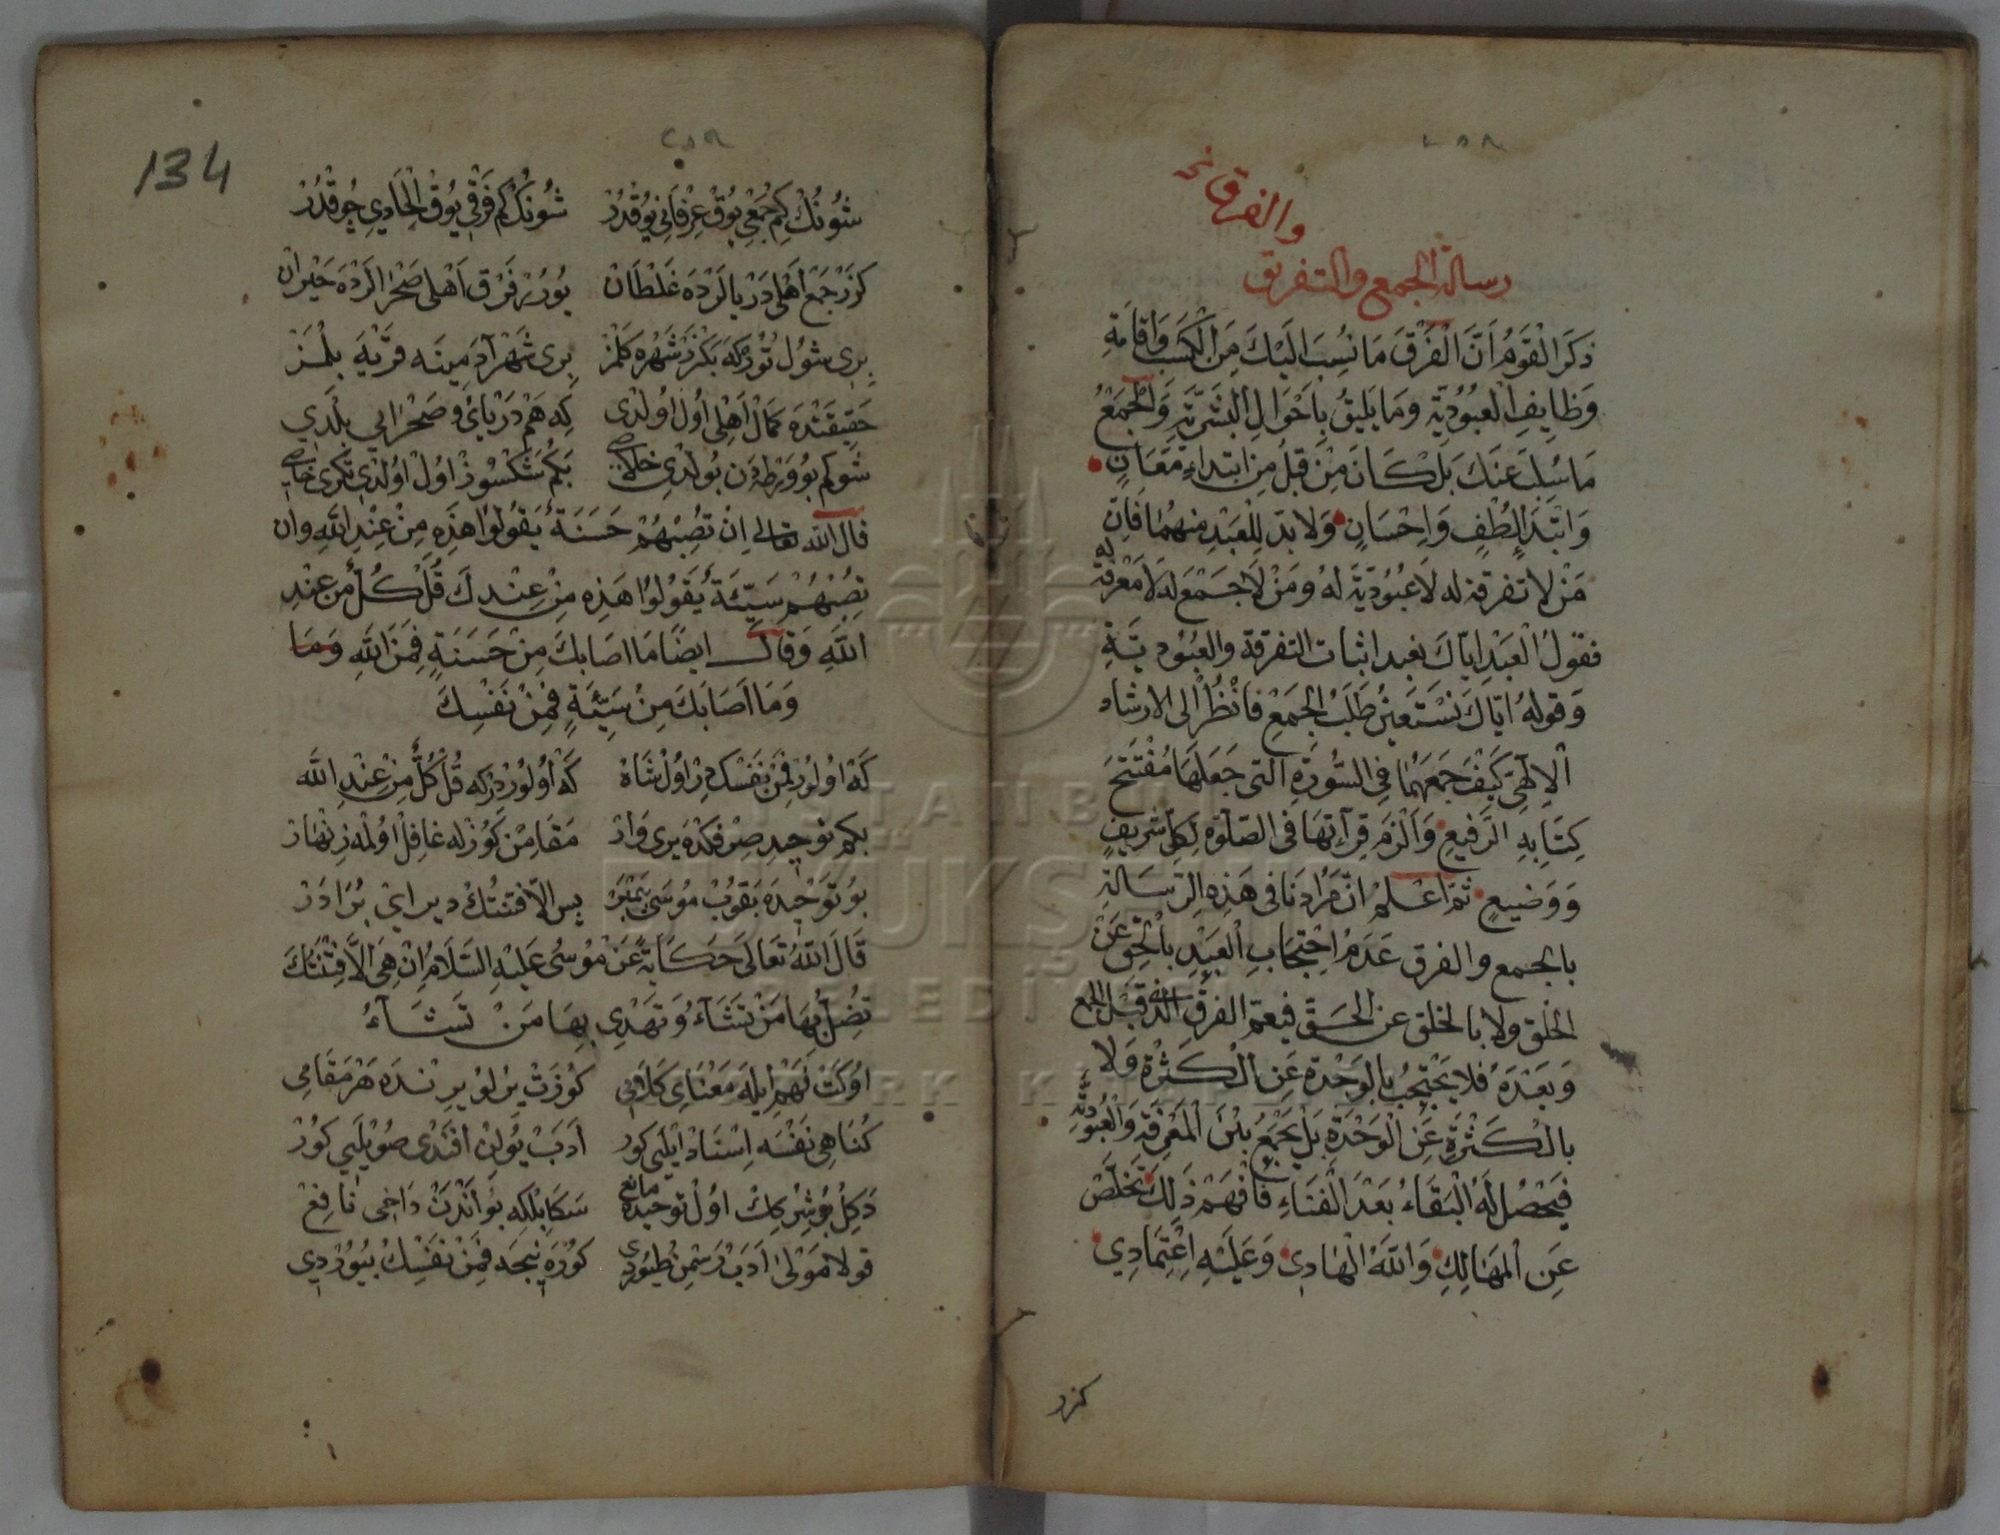 ٢٥٨
والفرق نخ
رسالة الجمع والتفريق
ذَكَرَ الْقَوْمُ اَنَّ الْفَرْقَ مَا نُسِبَ اِلَيْكَ مِنَ الْكَسْبِ وَاِقَامَةِ
وَظَايِفِ الْعُبُودِيَّةِ وَمَا يَلِيقُ بِاَحْوَالِ الْبَشَرِيَّةِ وَالْجَمْعُ
مَا سُلِبَ عَنْكَ بَلْ كَانَ مِنْ قِبَلِ مِن ابْتِدَاءِ مَعَانٍ
وَابْتِدَاءِ لُطْفٍ وَاِحْسَانٍ وَلَابُدَّ لِلْعَبْدِ مِنْهُمَا فَاِنَّ
مَنْ لَا تفرقة له لَا عُبُودِيَّةَ لَهُ وَمَنْ لَا جَمْعَ لَهُ لَا مَعْرِفَةَ لَهُ
فقولُ الْعَبْدِ اِيَّاكَ نعبد اثبات التفرقة والعُبُودِيَّةِ
وَقولهُ اِيَّاكَ نَسْتَعِينُ طَلَبُ الْجَمْعِ فَانْظُرْ اِلى الارشاد
الْاِلٰهِيِّ كَيْفَ جَمَعَهُمَا فِي السُّورَةِ الَّتى جَعَلَهَا مُفْتَتَحَ
كِتَابِهِ الرَّفِيعِ وَاَلْزَمَ قِرَاَتِهَا فِى الصَّلٰوةِ لِكُلِّ شَرِيفٍ
وَوَضِيعٍ ثُمَّ اعْلَمْ اَنَّ مُرَادَنَا فى هَذِهِ الرِّسَالَةِ
بالجمع والفرق عَدَمُ احْتِجَابِ الْعَبْدِ بِالْحَقِّ عَنْ
الخَلْقِ ولا بالخلق عَنِ الْحَقِّ فيعم الفرق الذى قَبْلَ الجمع
وَبَعْدَهُ فَلَا يَحْتَجِبُ بِالْوَحْدَةِ عَنِ الْكَثْرَةِ وَلَا
بِالْكَثْرَةِ عَنِ الْوَحْدَةِ بَلْ يَجْمَعُ بَيْنَ الْمَعْرِفَةِ وَالْعُبُودِيَّةِ
فَيَحْصُلُ لَهُ الْبَقَاءُ بَعْدَ الْفَنَاءِ فَافْهَمْ ذَلِكَ تَخَلَّصْ
عَنِ الْمَهَالِكِ وَاللّٰهُ الْهَادِى وَعَلَيْهِ اعْتِمَادِي
كزر
134
٢٥٩
شُونُكْ كِمْ جَمْعِى يُوقْ عِرْفَانِى يُوقْدُرْ شُونُكْ كِمْ فَرْقِى يُوقْ اِلْحَادِى چُوقْدُرْ
كَزَرْ جَمْعْ اَهْلِى دَرْيَالَرْدَه غَلْطَانْ يُورُرْ فَرْقْ اَهْلِى صَحْرَالَرْدَه حَيْرَانْ
بِرِى شُولْ تُورْكَه بَكْزَرْ شَهْرَه كَلْمَزْ بِرِى شَهْرْ آدَمِينَه قَرْيَهَ بِلْمَزْ
حَقِيقَتْدَه كَمَالْ اَهْلِى اُولْ اُولْدِى كِه هَمْ دَرْيَايِ وصَحْرَايِ بِلْدِي
شُوكِمْ بُو وَرْطَه دَن بُولْدِى خَلَاصِى بَكُمْ شَكْسُوزْ اُولْ اُولْدِى تَكْرِى خَاصِى
قَالَ اللّٰه تعَالى اِنْ تُصِبْهُمْ حَسَنَةٌ يَقُولُوا هَذِهِ مِنْ عِنْدِ اللّٰهِ وان
تُصِبْهُمْ سَيِّئَةٌ يَقُولُوا هَذِهِ مِنْ عِنْدِكَ قُلْ كُلٌّ مِنْ عِنْدِ
اللّٰهِ وَقَالَ ايضًا مَا اصَابكَ مِنْ حَسَنَةٍ فَمِنَ اللّٰهِ وَمَا
وَمَا اَصَابَكَ مِنْ سَيِّئَةٍ فَمِنْ نَفْسِكَ
كَهْ اُولُورْ فَمِنْ نَفْسِكْ دِرْ اُولْ شَاهْ كَهْ اُولُورْ دِرْكَه قُلْ كُلٌّ مِنْ عِنْدِ اللّٰه
بكم توحيدِ صِرْفكْدَه يرى وَارْ مَقَامِنْ كُوزْلَه غَافِلْ اُولْمَه زِنْهَارْ
بُو تَوْحِيدَه بَقُوبْ مُوسَى پَيَمْبَرْ پس اِلّا فتنتُكْ دير اَيْ بُرَادَرْ
قَالَ اللّٰهُ تَعَالَى حَكَايَةً عَنْ مُوسٰى عَلَيْهِ السَّلَامُ اِنْ هِىَ اِلَّا فِتْنَتُكَ
تُضِلُّ بِهَا مَنْ تَشَاءُ وَتَهْدِى بِهَا مَنْ تَشَاءُ
اُوكَتْ لَهِمْ اَيْلَه مَعْنَاىِ كَلَامِى كُوزَتْ يرْلُو يرِنْدَه هَرْ مَقَامِى
كُنَاهِى نَفْسَه اِسْنَادْ اَيْلَيِى كور اَدَبْ يُولِنْ اَفَنْدِى صُويْلَيِى كُورْ
دَكِلْ بُو شِرْكِكْ اُولْ توحيده مانع سَكَا بَلْكِه بُو اَنْدَنْ دَاخِى نَافِعْ
قولا مَوْلَى اَدَبْ رَسْمِنْ طُيُورْدِى كُورَه نيجه فَمِنْ نَفْسِكْ بُيُورْدِي